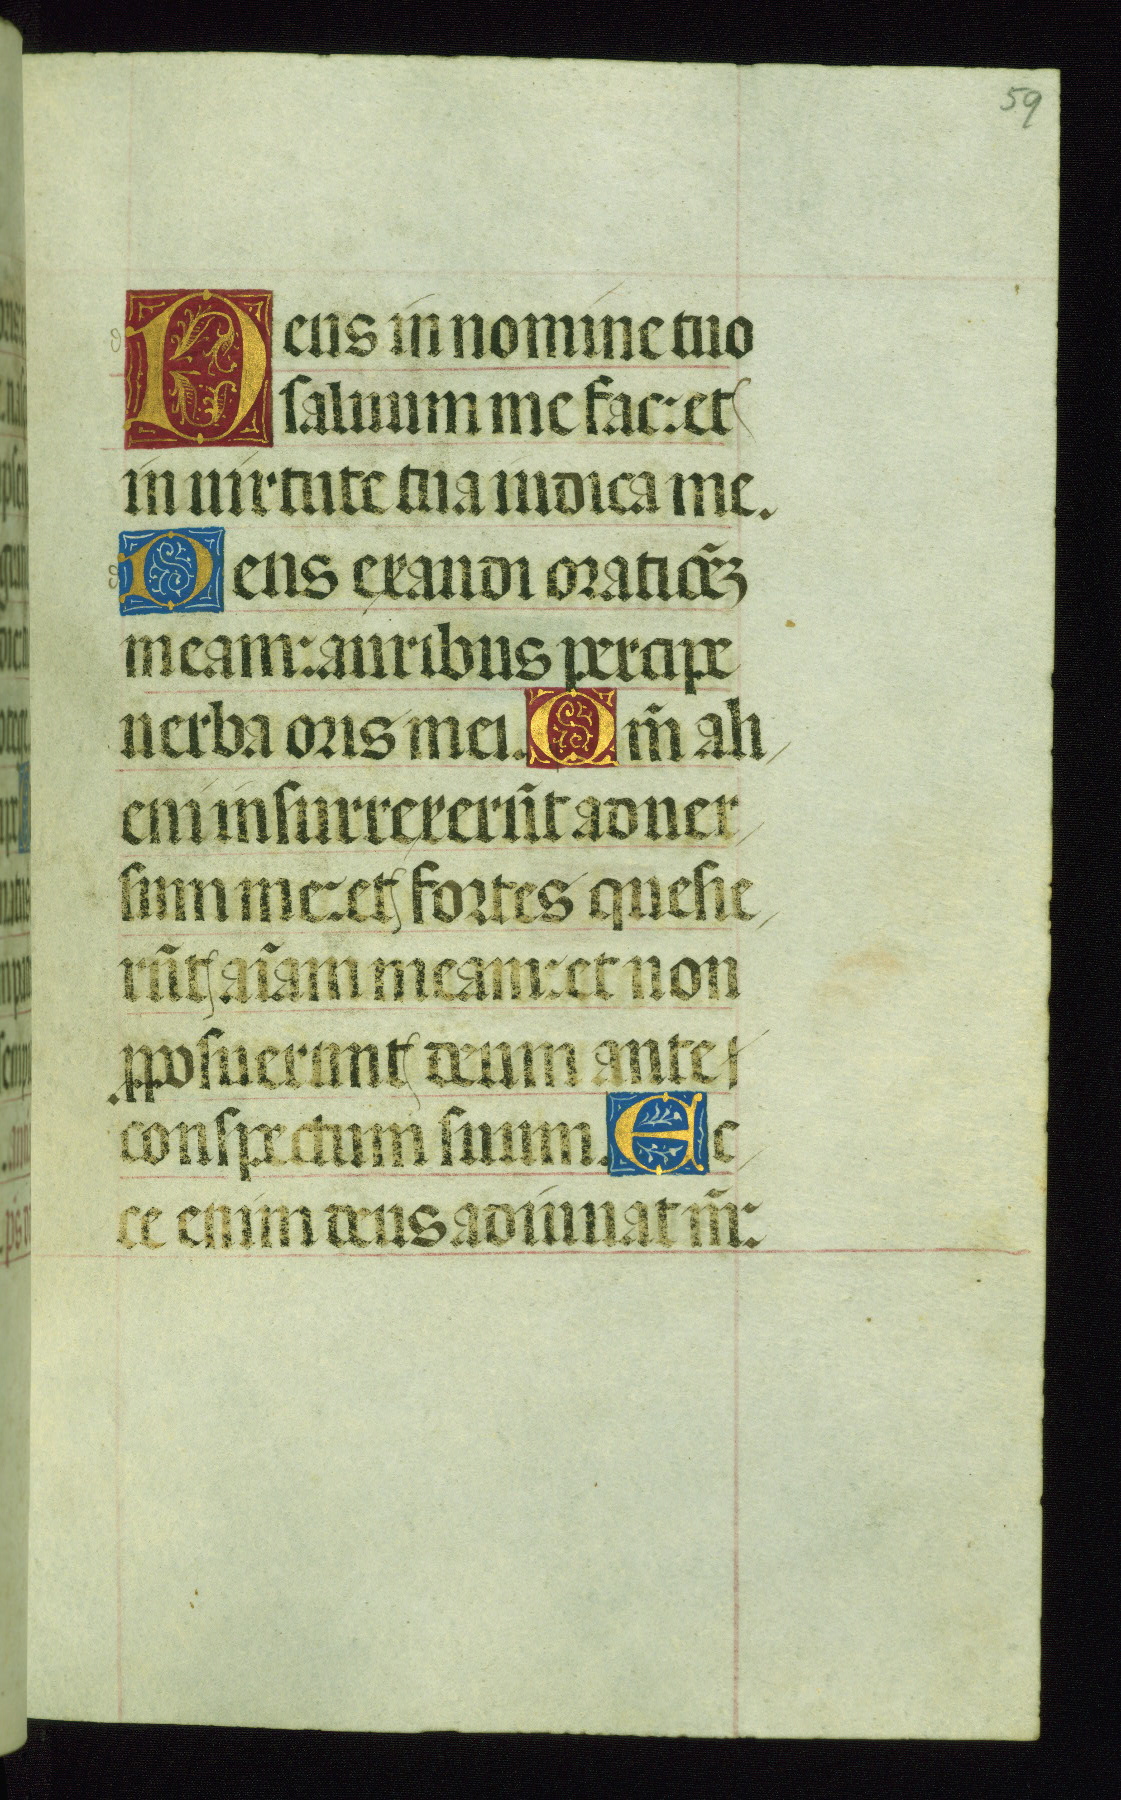 59
Deus in nomine tuo
saluum me fac: et
in uirtute tua iudica me.
Deus exaudi oratiōēz
meam: auribus percipe
uerba oris mei. Qm̄ ali
eni insurrexerūt aduer
sum me: et fortes quesie
rūt aīam meam: et non
p̱posuerunt deum ante
conspectum suum. Ec
ce enim deus adiuuat m̄: